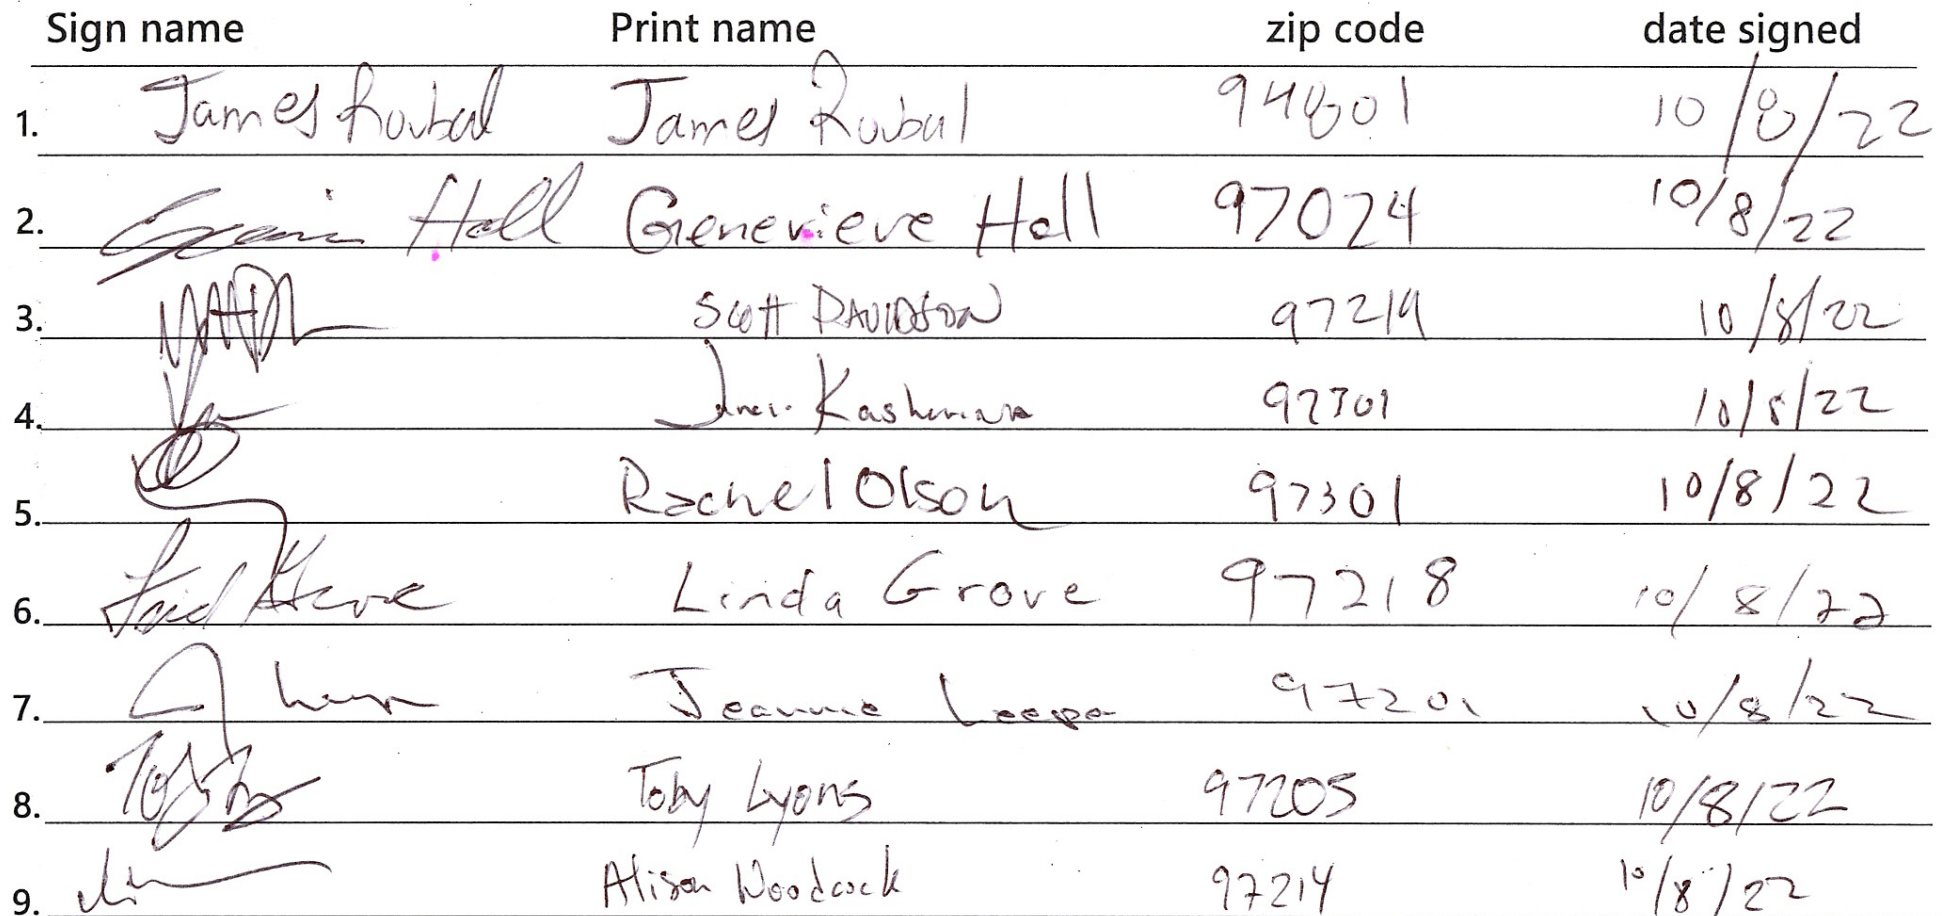 Sign name Print name zip code date signed
1. James Roubal James Roubal 94801 10/8/22
2. Hall Genevieve Hall 97024 10/8/22
3. Scott DAVIDSON 97219 10/8/22
4. 97301 10/8/22
5. Rachel Olson 97301 10/8/22
6. Linda Grove 97218 10/8/22
7. Jeannie 97201 10/8/22
8. Toby Lyons 97205 10/8/22
9. Alison Woodcock 97214 10/8/22